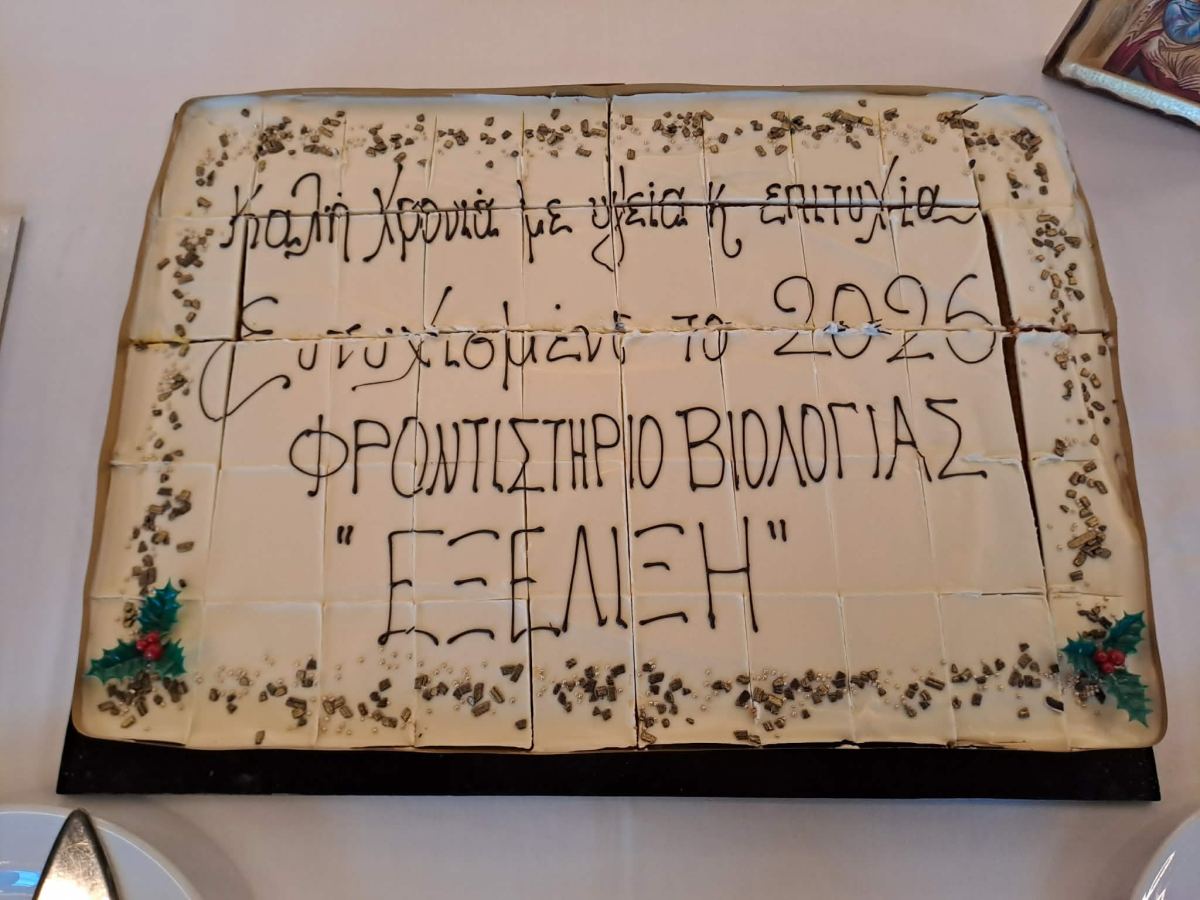 Καλή χρονιά με υγεία κ επιτυχία
Ευτυχισμένο το 2026
ΦΡΟΝΤΙΣΤΗΡΙΟ ΒΙΟΛΟΓΙΑΣ
"ΕΞΕΛΙΞΗ"